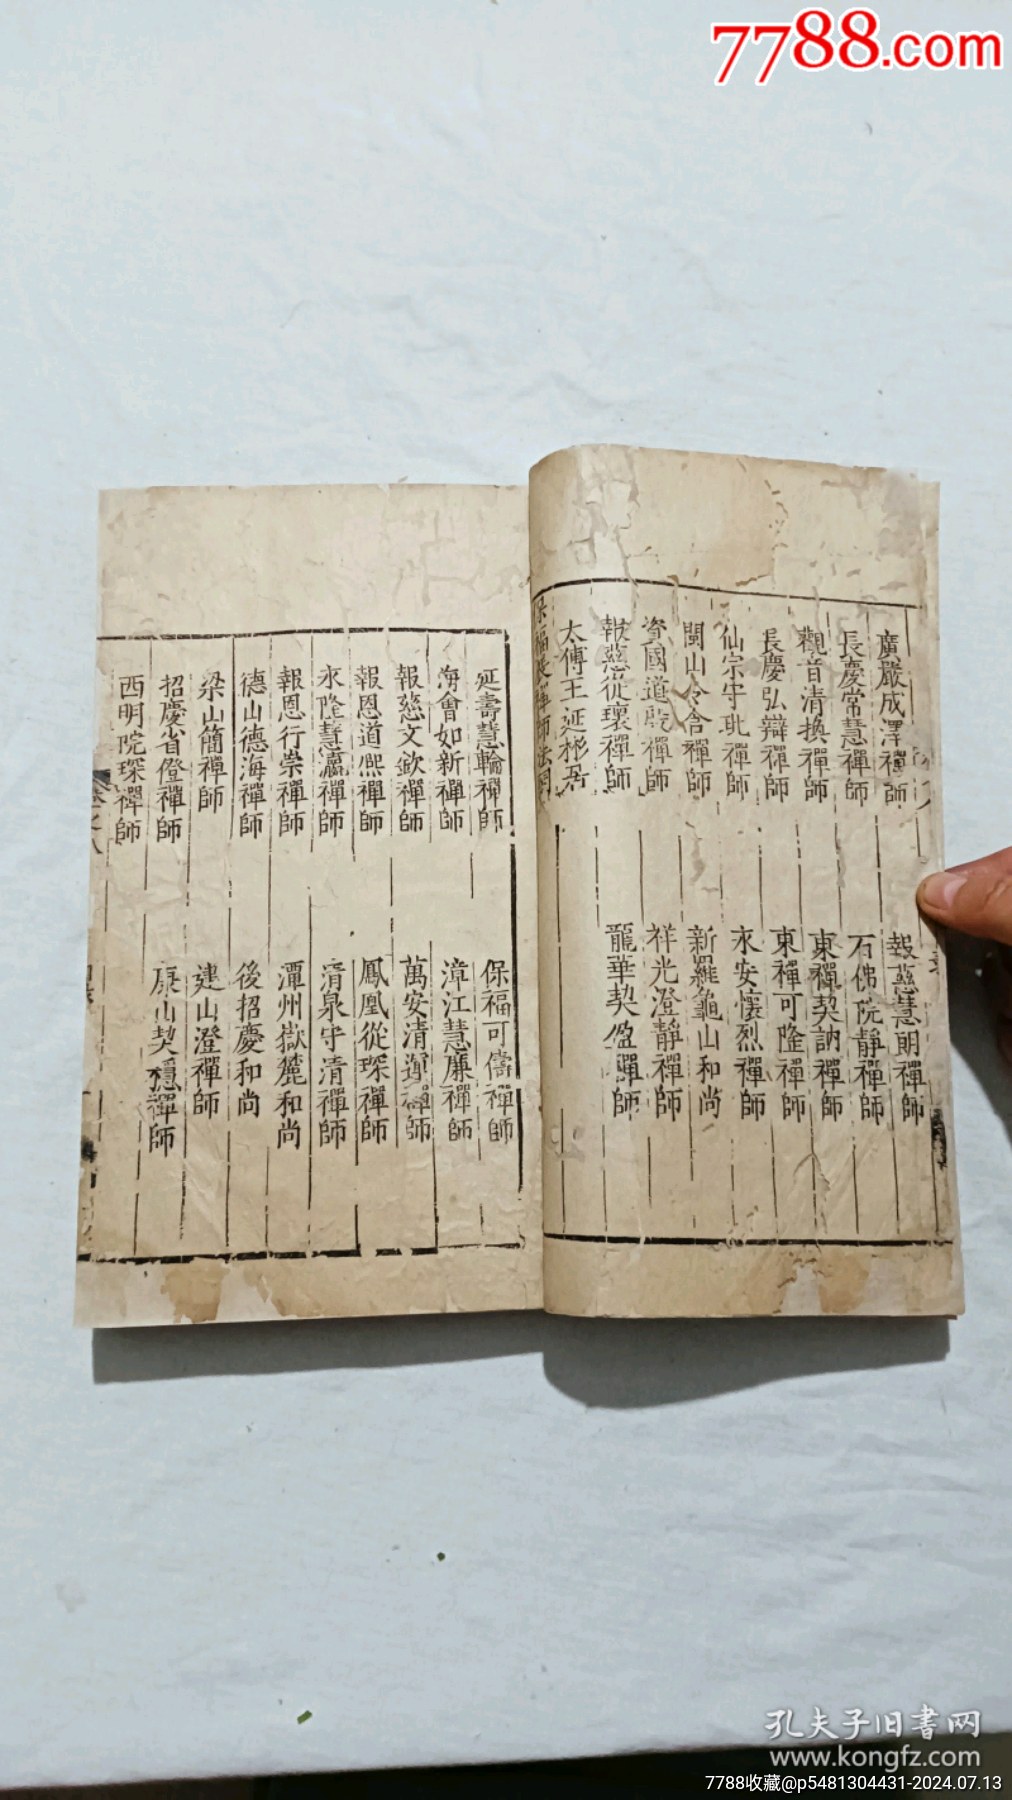 7788.com
廣嚴成澤禪師
報慈慧朗禪師
長慶常慧禪師
石佛院靜禪師
觀音清換禪師
東禪契訥禪師
長慶弘辯禪師
東禪可隆禪師
仙宗守玭禪師
永安懷烈禪師
閩山令含禪師
新羅龜山和尚
資國道殷禪師
祥光澄靜禪師
報慈從瓌禪師
龍華契盈禪師
太傅王延彬居
保福展禪師法
延壽慧輪禪師
保福可儔禪師
海會如新禪師
漳江慧廉禪師
報慈文欽禪師
萬安清運禪師
報恩道熈禪師
鳳凰從琛禪師
永隆慧瀛禪師
清泉守清禪師
報恩行崇禪師
潭州嶽麓和尚
德山德海禪師
後招慶和尚
梁山簡禪師
建山澄禪師
招慶省僜禪師
康山契穩禪師
西明院琛禪師
卷之八
孔夫子旧書网
www.kongfz.com
7788收藏@p5481304431-2024.07.13